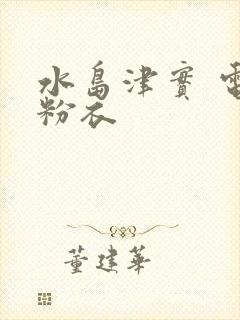 水島津實 電
粉衣
董建華